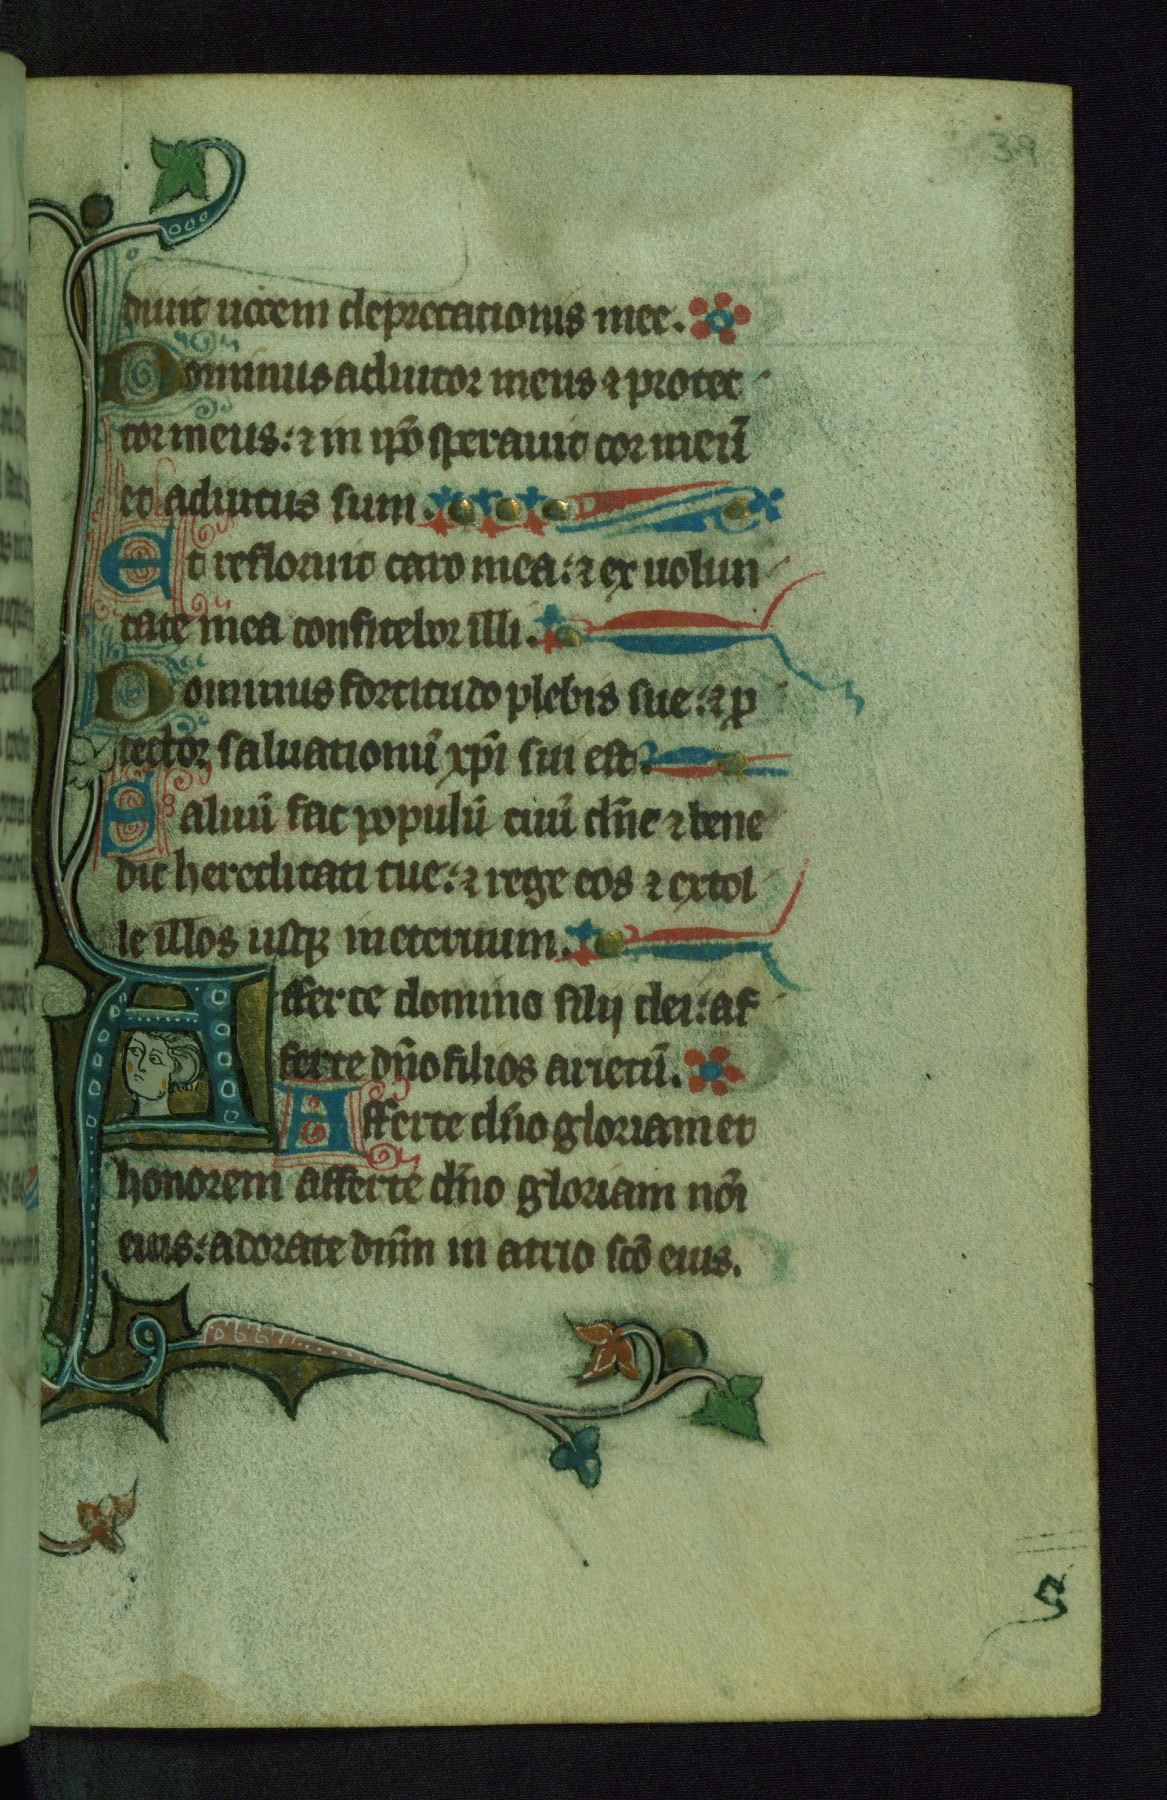 39
diuit uocem deprecationis mee.
Dominus adiutor meus ⁊ protec
tor meus: ⁊ in ip̄o sperauit cor meū
et adiutus sum.
Et refloruit caro mea: ⁊ ex uolun
tate mea confitebor illi.
Dominus fortitudo plebis sue: ⁊ ꝓ
tector saluationū xp̄i sui est.
Saluū fac populū tuū dn̄e ⁊ bene
dic hereditati tue: ⁊ rege eos ⁊ extol
le illos usꝗ in eternum.
Afferte domino filij dei: af
ferte dn̄o filios arietū.
Afferte dn̄o gloriam et
honorem afferte dn̄o gloriam nōi
eius: adorate dn̄m in atrio sc̄o eius.